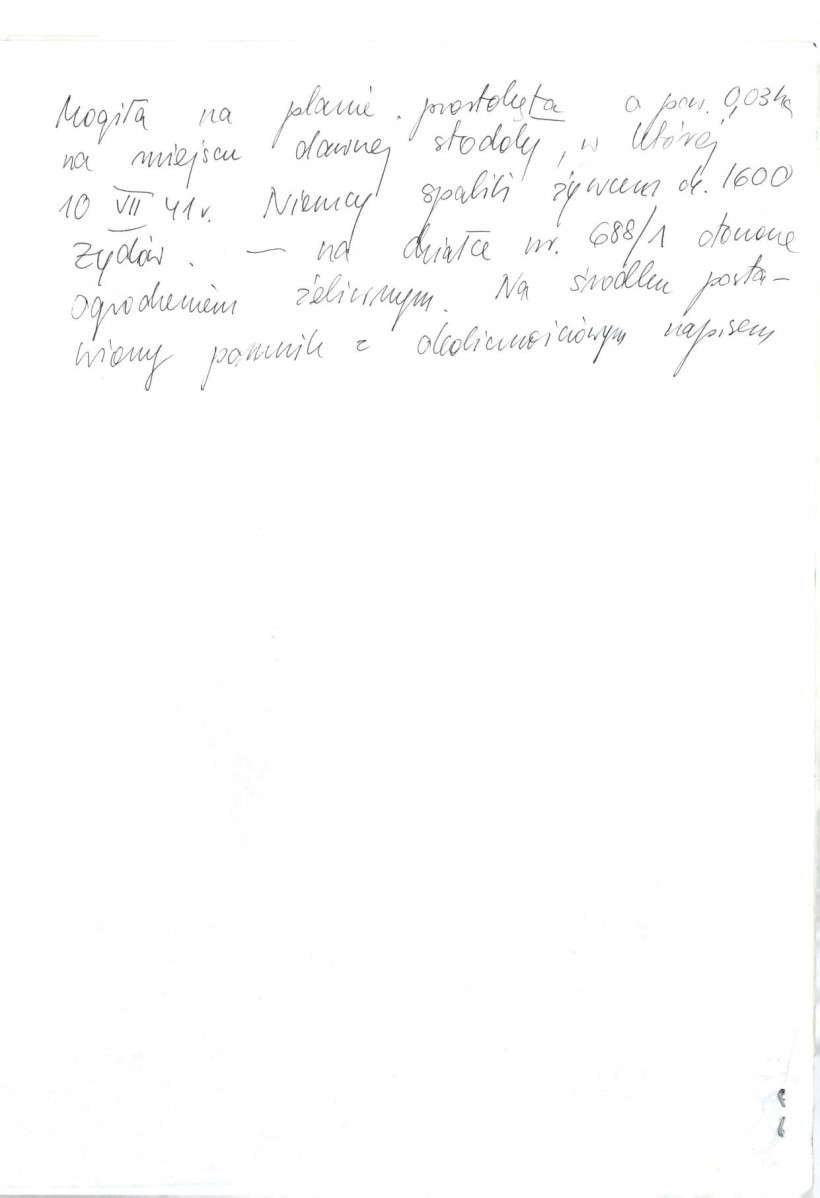 Mogiła na planie prostokąta o pow. 0,03ha
na miejscu dawnej stodoły, w której
10 VII 41 r. Niemcy spalili żywcem ok. 1600
Żydów. — na działce nr. 688/1 otoczone
ogrodzeniem żeliwnym. Na środku posta-
wiony pomnik z okolicznościowym napisem